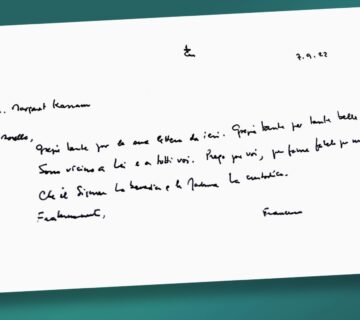 7.9.22
Margaret Karram
Sorella,
Grazie tante per la sua lettera di ieri. Grazie tante per tante belle
Sono vicino a Lei e a tutti voi. Prego per voi, per favore fatelo per me
Che il Signore La benedica e la Madonna La custodisca.
Fraternamente,
Francesco